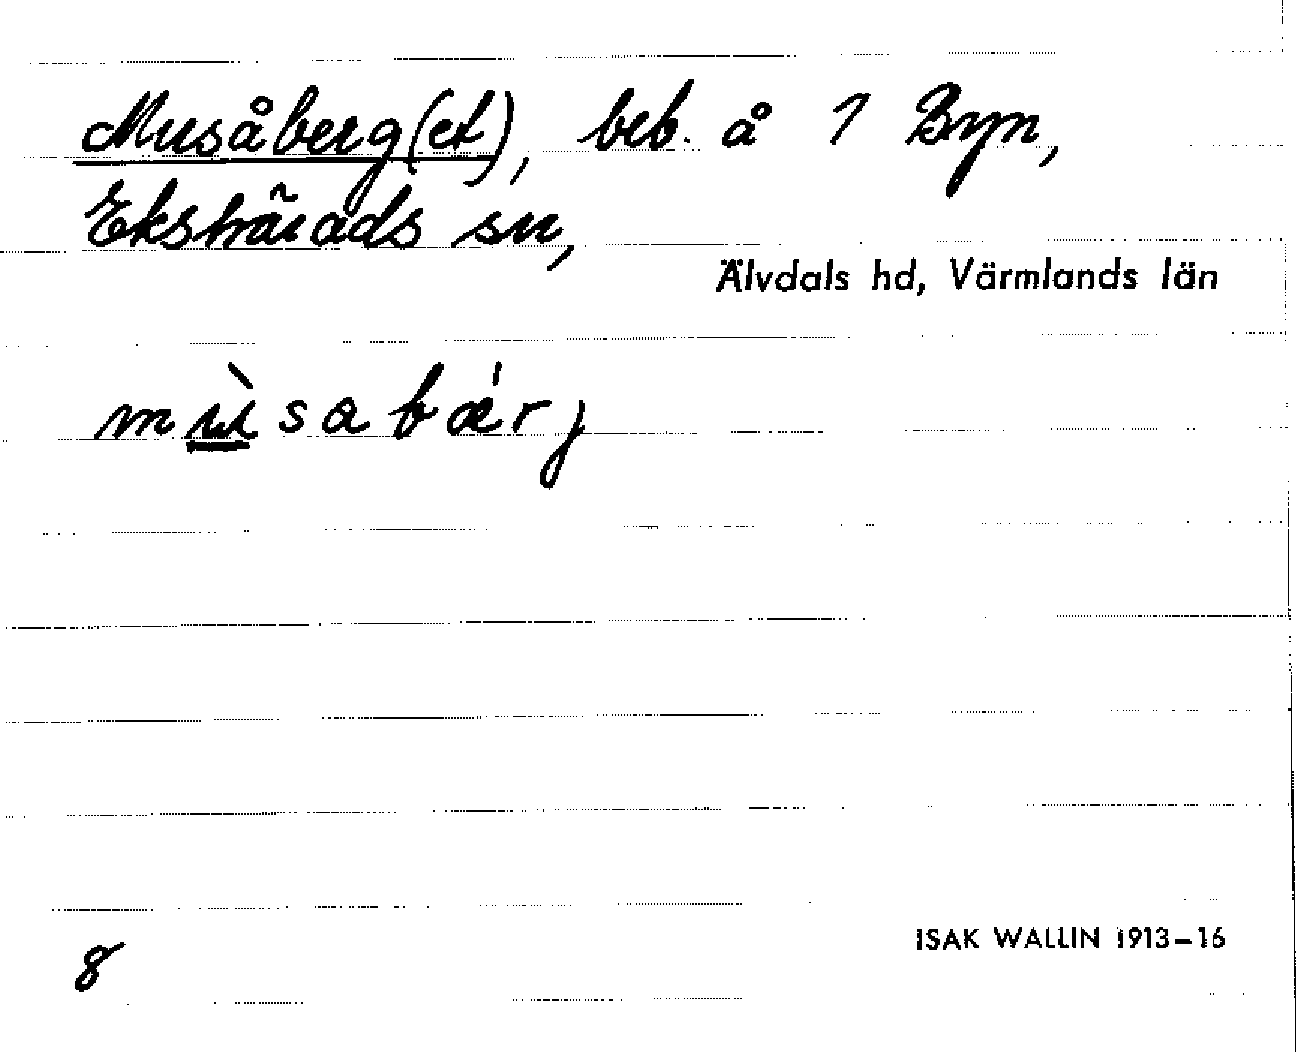 Musåberg(et), beb. å 1 Byn,
Ekshärads sn,
Älvdals hd, Värmlands län
mùsabǽrj
8
ISAK WALLIN 1913–16